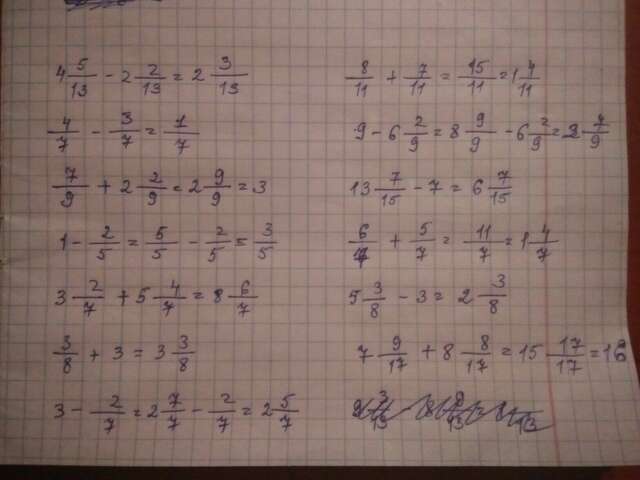 4 5/13 - 2 2/13 = 2 3/13
4/7 - 3/7 = 1/7
7/9 + 2 2/9 = 2 9/9 = 3
1 - 2/5 = 5/5 - 2/5 = 3/5
3 2/7 + 5 4/7 = 8 6/7
3/8 + 3 = 3 3/8
3 - 2/7 = 2 7/7 - 2/7 = 2 5/7
8/11 + 7/11 = 15/11 = 1 4/11
9 - 6 2/9 = 8 9/9 - 6 2/9 = 2 7/9
13 7/15 - 7 = 6 7/15
6/7 + 5/7 = 11/7 = 1 4/7
5 3/8 - 3 = 2 3/8
7 9/17 + 8 8/17 = 15 17/17 = 16